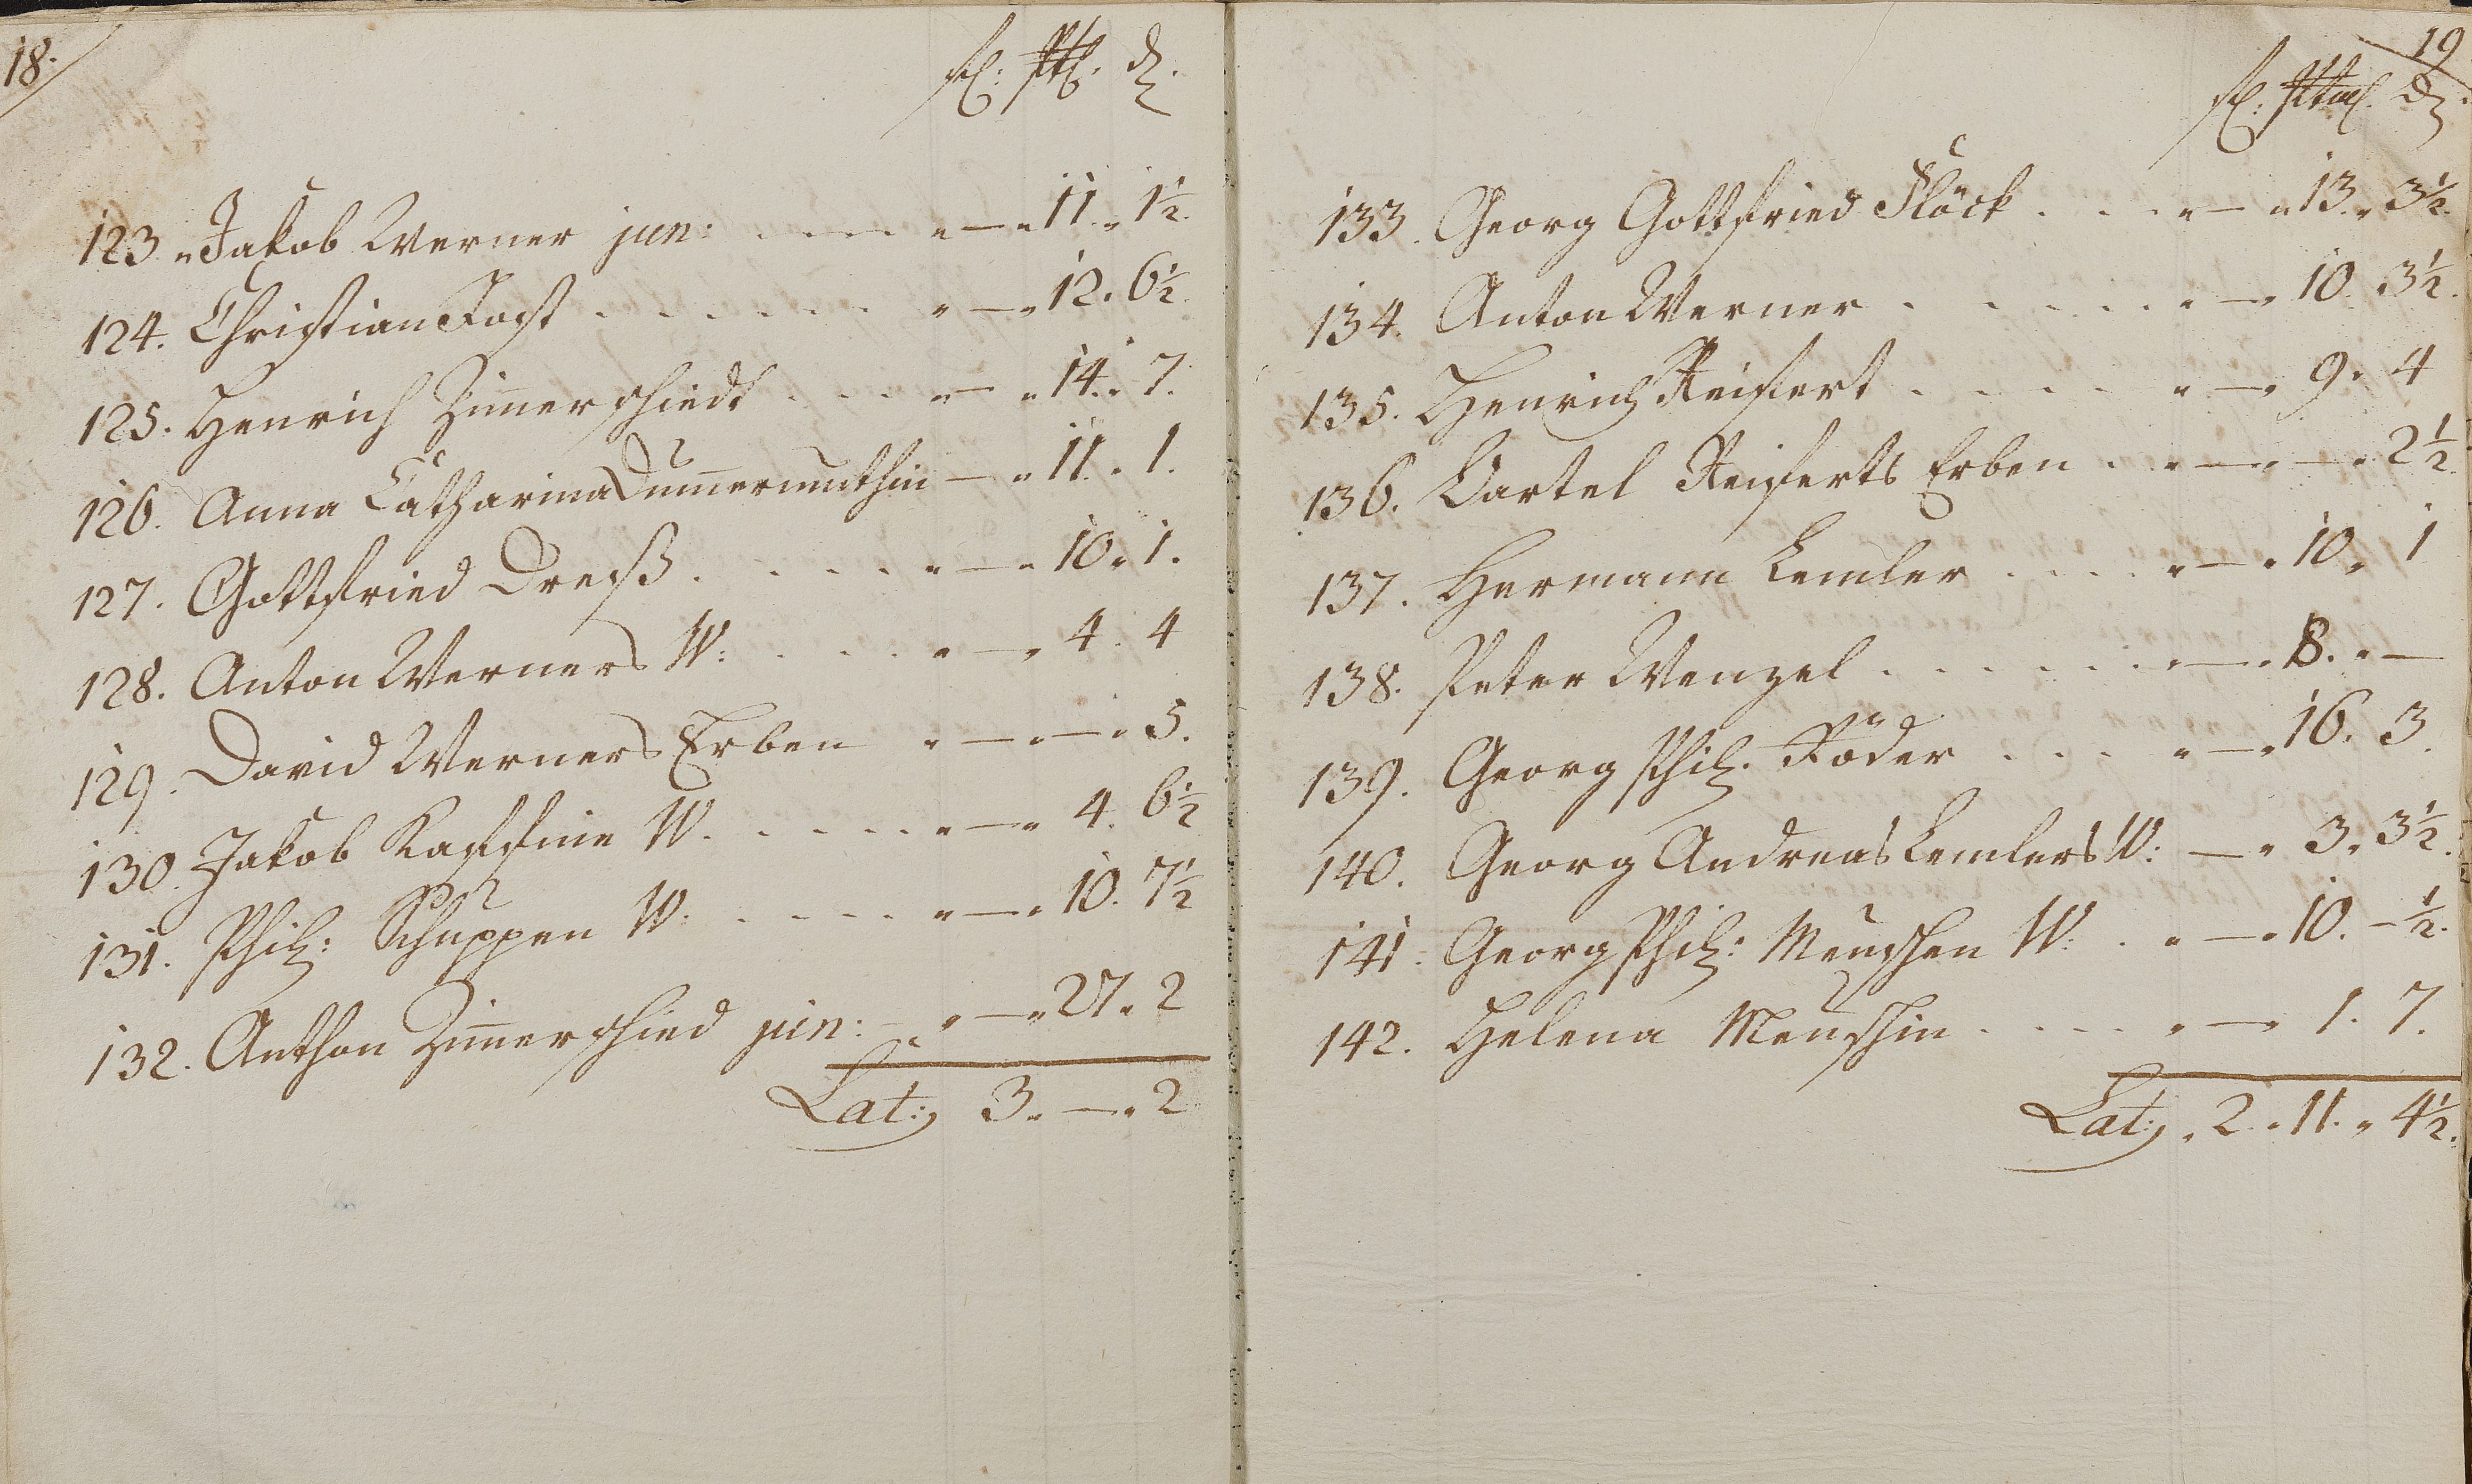 18.
fl: Alb. d.
123. Jakob Werner jun: . . . . „ — „ 11. „ 1½.
124. Christian Jost . . . . . . „ — „ 12. 6½.
125. Henrich Zim̄erschiedt . . . „ — „ 14. „ 7.
126. Anna Catharina Dum̄ermuthin — „ 11. „ 1.
127. Gottfried Dreyß . . . . . „ — „ 10. „ 1.
128. Anton Werners W: . . . . „ — „ 4. 4
129. David Werners Erben „ — „ — „ 5.
130. Jakob W. . . . . . „ — „ 4. 6½
131. Phil: Schuppen W: . . . . . „ — „ 10. 7½
132. Anthon Zim̄erschied jun: — „ — „ 27. „ 2
Lat: 3. „ — „ 2
19
fl: Alb. d.
133. Georg Gottfried Flöck . . . „ — „ 13. „ 3½.
134. Anton Werner . . . . . . „ — „ 10. 3½.
135. Henrich Reifert . . . . . „ — „ 9. 4
136. Bartel Reiferts Erben . . „ — „ — „ 2½.
137. Hermann Lemler . . . . „ — „ 10. „ 1
138. Peter Wenzel . . . . . . „ — „ 8. „ —
139. Georg Phil: Röder . . . „ — „ 16. 3.
140. Georg Andreas Lemlers W: — „ 3. 3½.
141. Georg Phil: Meuschen W: . „ — „ 10. — ½.
142. Helena Meuschin . . . . „ — „ 1. 7.
Lat: „ 2. „ 11. „ 4½.